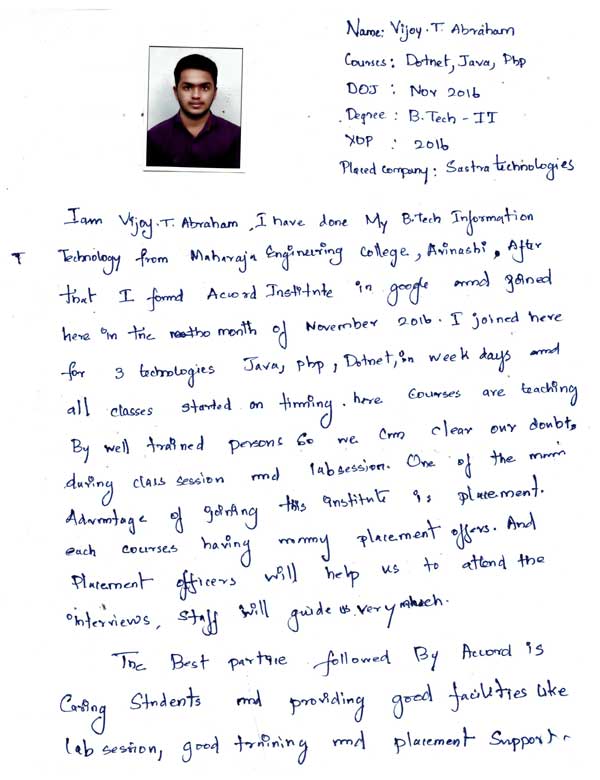 Name: Vijoy.T. Abraham
Courses: Dotnet, Java, Php
DOJ : Nov 2016
Degree : B.Tech - IT
YOP : 2016
Placed company: Sastra technologies
I am Vijoy.T. Abraham, I have done My B.Tech Information
Technology from Maharaja Engineering College, Avinashi, After
that I found Accord Institute in google and joined
here in the month of November 2016. I joined here
for 3 technologies Java, php, Dotnet, in week days and
all classes started on timing. here courses are teaching
By well trained persons So we can clear our doubts
during class session and lab session. One of the main
Advantage of joining this institute is placement.
each courses having many placement offers. And
Placement officers will help us to attend the
interviews, Staff will guide us very much.
The Best followed By Accord is
Caring Students and providing good facilities like
lab session, good training and placement Support.